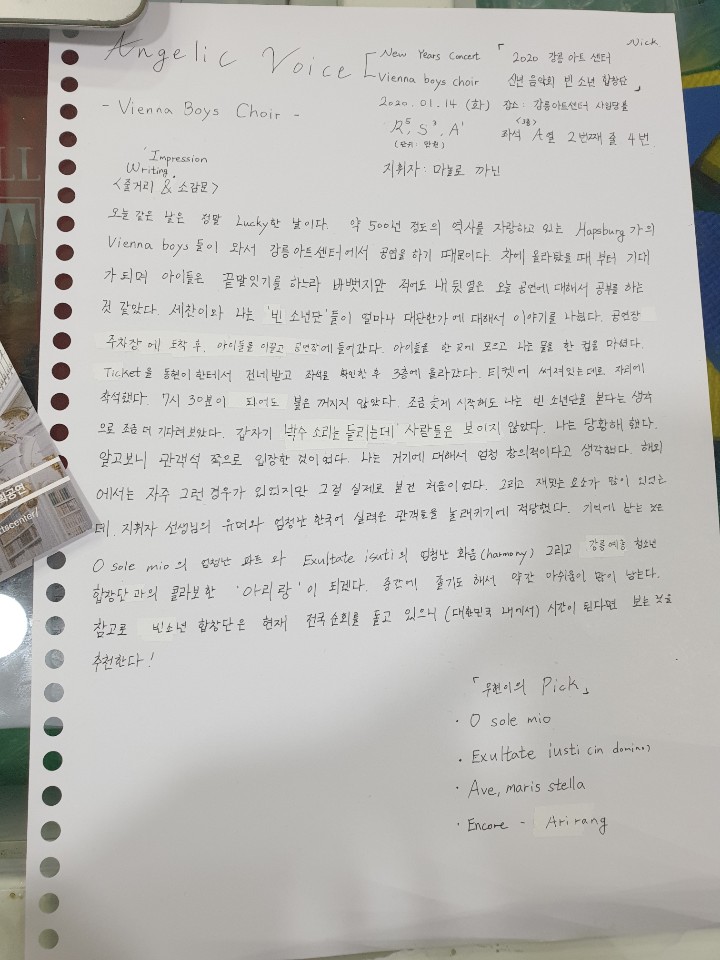 Nick
Angelic Voice
New Years Concert
Vienna boys choir
2020.01.14 (화)
R⁵, S³, A¹
(단위: 만원)
「2020 강릉 아트 센터
신년 음악회 빈 소년 합창단」
장소: 강릉아트센터 사임당홀
<3층>
좌석 A열 2번째 줄 4번
지휘자: 마놀로 까닌
- Vienna Boys Choir -
'Impression
Writing'
<줄거리 & 소감문>
오늘 같은 날은 정말 Lucky한 날이다. 약 500년 정도의 역사를 자랑하고 있는 Hapsburg가의
Vienna boys들이 와서 강릉아트센터에서 공연을 하기 때문이다. 차에 올라탔을 때 부터 기대
가 되며 아이들은 끝말잇기를 하느라 바빴지만 적어도 내 뒷 열은 오늘 공연에 대해서 공부를 하는
것 같았다. 세찬이와 나는 '빈 소년단'들이 얼마나 대단한가에 대해서 이야기를 나눴다. 공연장
주차장에 도착 후, 아이들을 이끌고 공연장에 들어갔다. 아이들을 한 곳에 모으고 나는 물을 한 컵을 마셨다.
Ticket을 동현이한테서 건네받고 좌석을 확인한 후 3층에 올라갔다. 티켓에 써져있는대로 자리에
착석했다. 7시 30분이 되어도 불은 꺼지지 않았다. 조금 늦게 시작해도 나는 빈 소년단을 본다는 생각
으로 조금 더 기다려 보았다. 갑자기 박수 소리는 들리는데 사람들은 보이지 않았다. 나는 당황해 했다.
알고보니 관객석 쪽으로 입장한 것이었다. 나는 거기에 대해서 엄청 창의적이다고 생각했다. 해외
에서는 자주 그런 경우가 있었지만 그걸 실제로 본건 처음이었다. 그리고 재밌는 요소가 많이 있었는
데, 지휘자 선생님의 유머와 엄청난 한국어 실력은 관객들을 놀래키기에 적당했다. 기억에 남는 것은
O sole mio의 엄청난 파트와 Exultate isuti의 엄청난 화음(harmony) 그리고 강릉예총 청소년
합창단과의 콜라보한 '아리랑'이 되겠다. 중간에 졸기도 해서 약간 아쉬움이 많이 남는다.
참고로 빈소년 합창단은 현재 전국순회를 돌고 있으니 (대한민국 내에서) 시간이 된다면 보는 것을
추천한다!
「우현이의 Pick」
· O sole mio
· Exultate iusti (in domino)
· Ave, maris stella
· Encore - Arirang
획공연
tscenter/